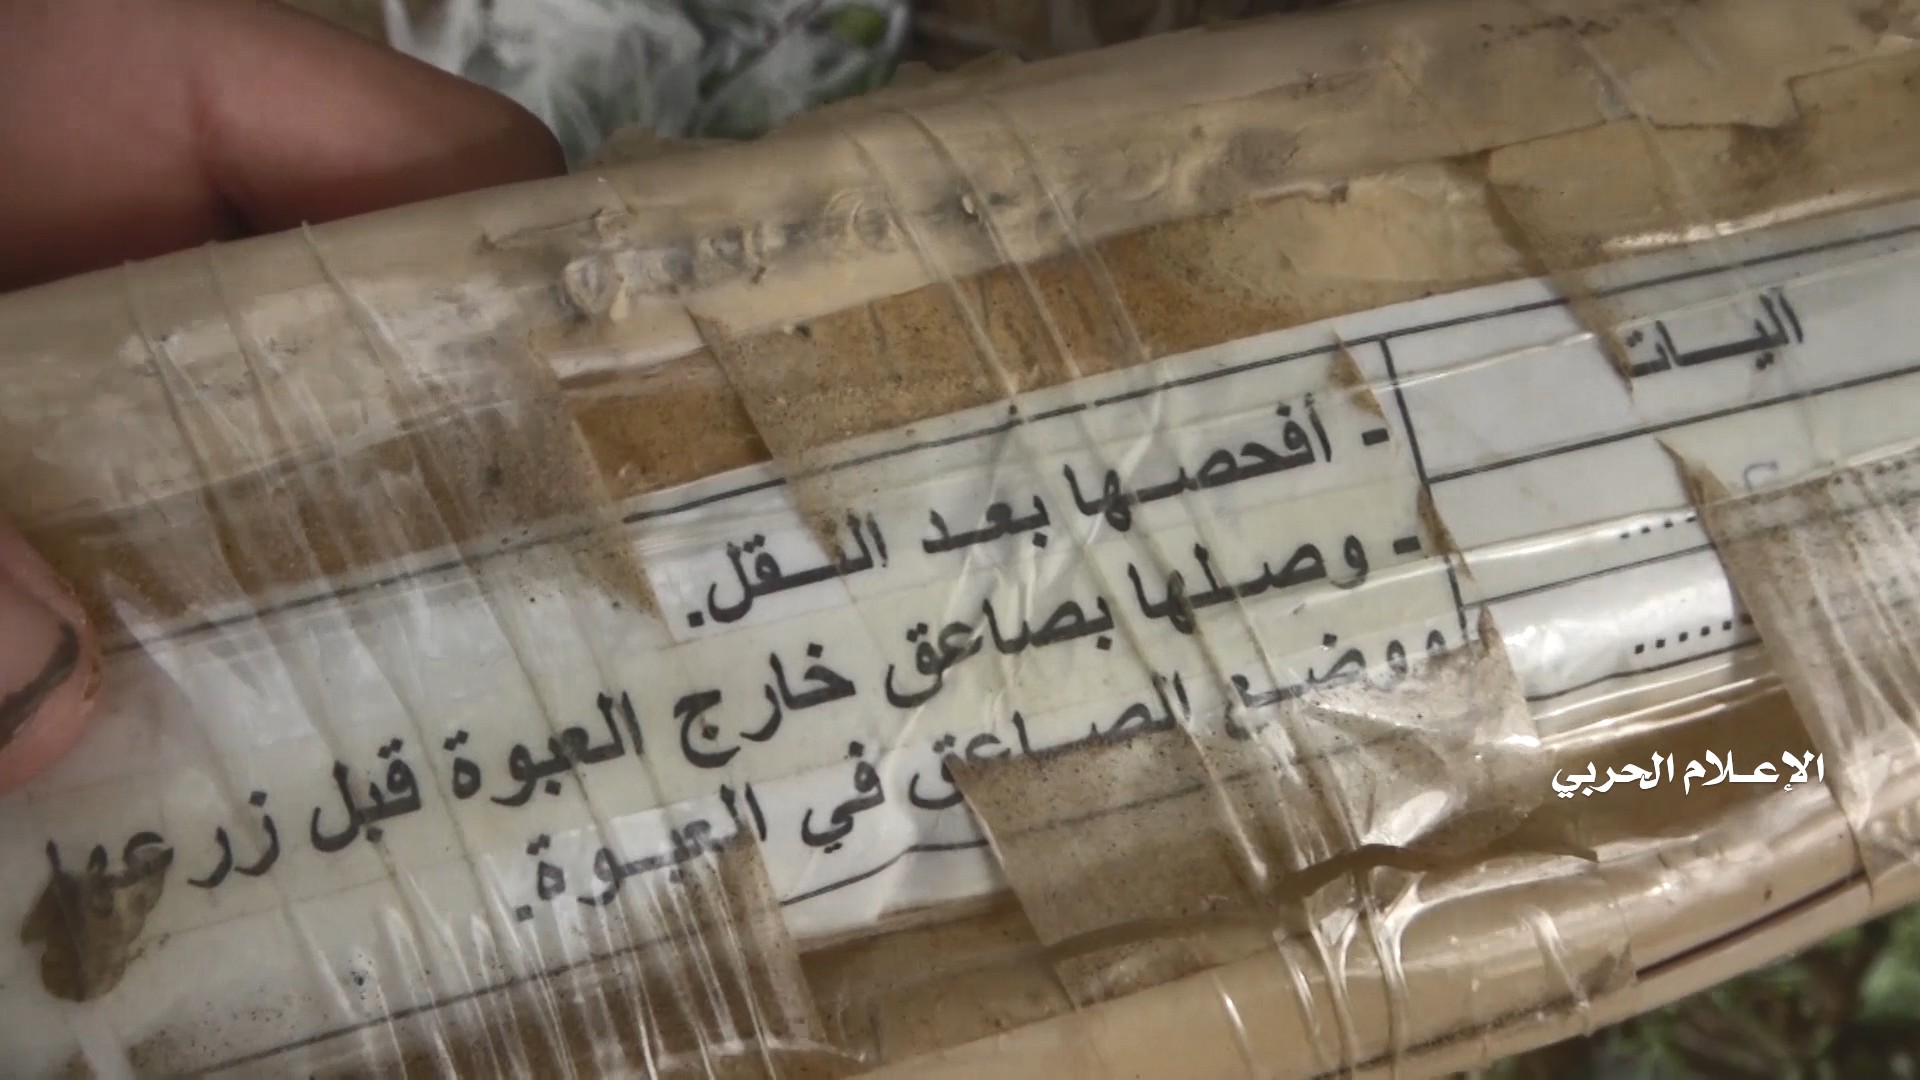 اليــات
- أفحصـها بعـد النـقل.
- وصـلها بصاعق خارج العبوة قبل زرعها
ووضـع الصـاعق في العبـوة.
الإعـلام الحربي